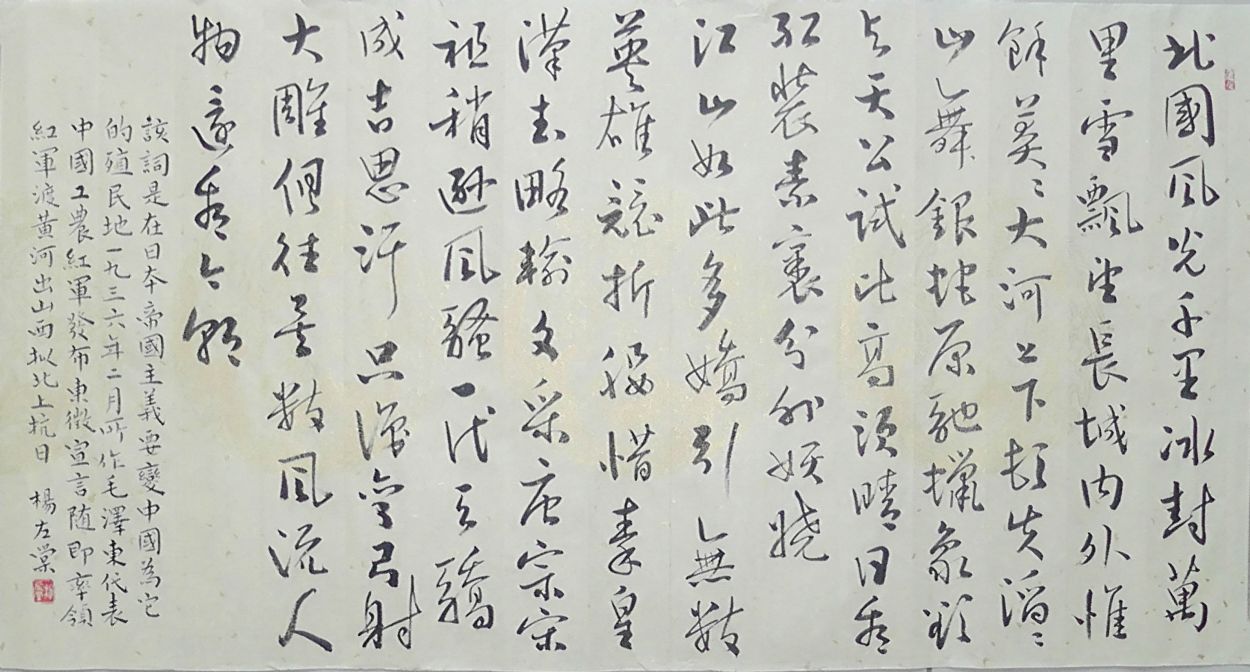 北國風光千里冰封萬
里雪飄望長城内外惟
餘莽〻大河上下頓失滔〻
山舞銀蛇原馳蠟象欲
与天公試比高須晴日看
紅裝素裹分外妖嬈
江山如此多嬌引無數
英雄競折腰惜秦皇
漢武略輸文采唐宗宋
祖稍遜風騷一代天驕
成吉思汗只識彎弓射
大雕俱往矣數風流人
物還看今朝
該詞是在日本帝國主義要變中國為它
的殖民地一九三六年二月所作毛澤東代表
中國工農紅軍發布東徵宣言随即率領
紅軍渡黃河出山西拟北上抗日 楊左棠